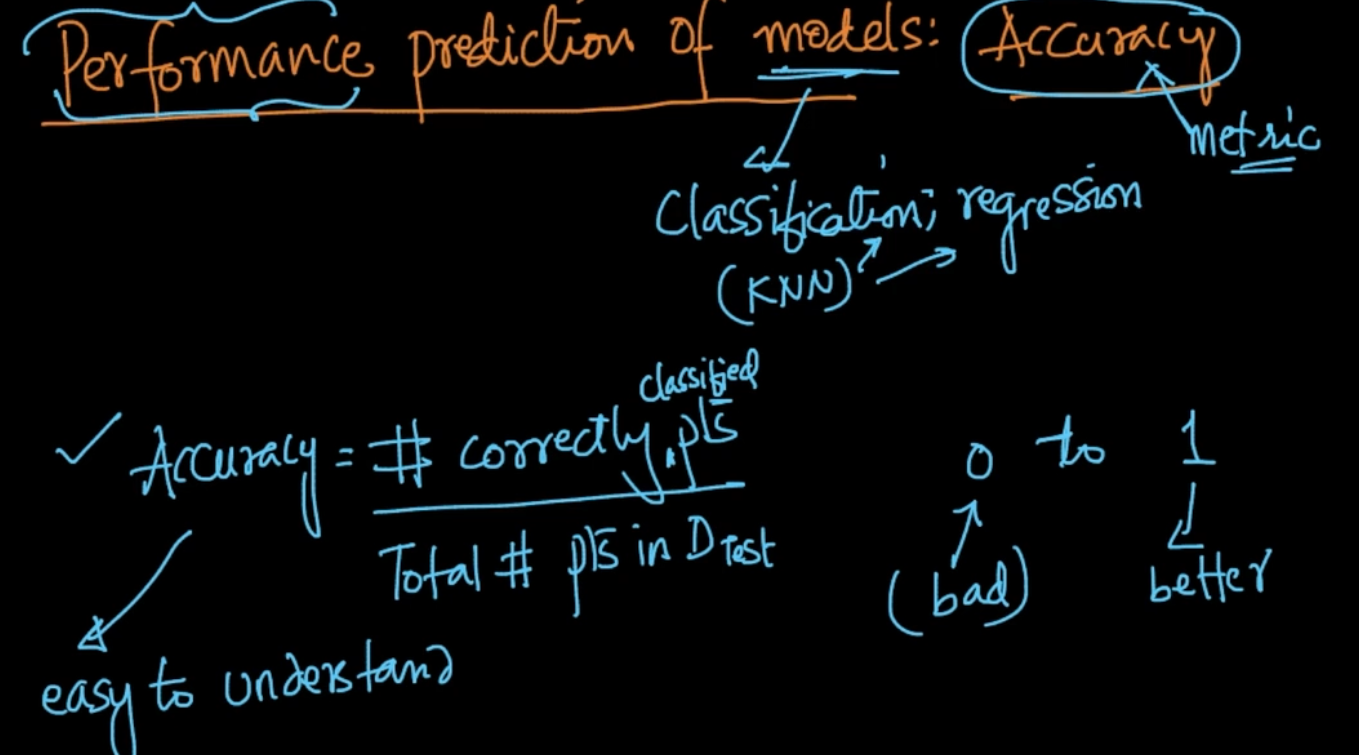 Performance prediction of models: Accuracy
metric
Classification; regression
(KNN)
classified
✓ Accuracy = # correctly pts
Total # pts in D Test
0 to 1
(bad) better
easy to understand